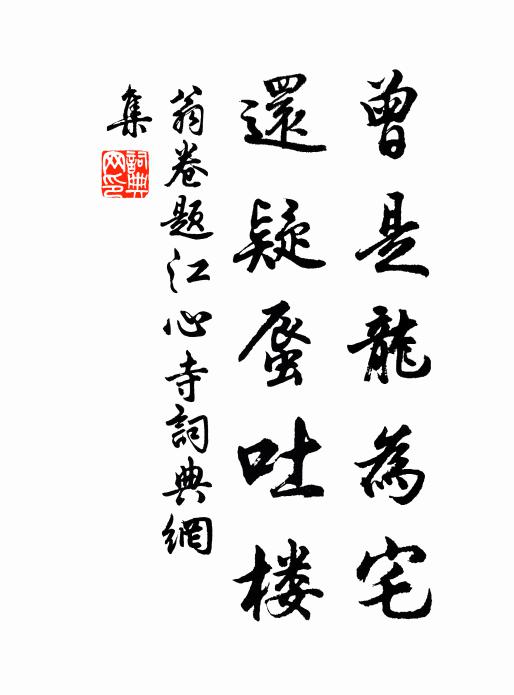 曾是龍為宅
還疑蜃吐楼
翁卷题江心寺詞典網
集
詞典网印